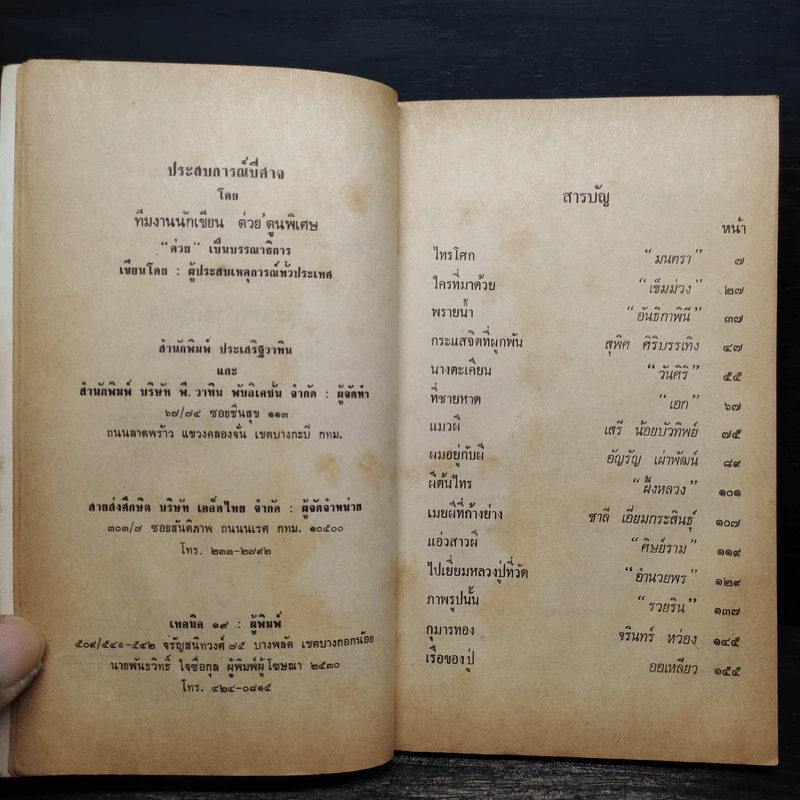 ประสบการณ์ปีศาจ
โดย
ทีมงานนักเขียน ต่วย'ตูนพิเศษ
"ต่วย" เป็นบรรณาธิการ
เขียนโดย : ผู้ประสบเหตุการณ์ทั่วประเทศ
สำนักพิมพ์ ประเสริฐวาทิน
และ
สำนักพิมพ์ บริษัท พี. วาทิน พับลิเคชั่น จำกัด : ผู้จัดทำ
๖๗/๗๔ ซอยชื่นสุข ๑๑๓
ถนนลาดพร้าว แขวงคลองจั่น เขตบางกะปิ กทม.
สายส่งศึกษิต บริษัท เคล็ดไทย จำกัด : ผู้จัดจำหน่าย
๓๐๓/๗ ซอยสันติภาพ ถนนนเรศ กทม. ๑๐๕๐๐
โทร. ๒๓๓-๒๗๙๒
เทคนิค ๑๙ : ผู้พิมพ์
๕๐๙/๕๔๑-๕๔๒ จรัญสนิทวงศ์ ๗๕ บางพลัด เขตบางกอกน้อย
นายพันธวิทธิ์ ใจซื่อกุล ผู้พิมพ์ผู้โฆษณา ๒๕๓๐
โทร. ๔๒๔-๐๘๑๕
สารบัญ
หน้า
ไทรโศก "มนตรา" ๗
ใครที่มาด้วย "เข็มม่วง" ๒๗
พรายน้ำ "อันธิกาพินี" ๓๗
กระแสจิตที่ผูกพัน สุพิศ ศิริบรรเทิง ๔๗
นางตะเคียน "วันศิริ" ๕๕
ที่ชายหาด "เอก" ๖๗
แมวผี เสรี น้อยบัวทิพย์ ๗๕
ผมอยู่กับผี อัญรัญ เผ่าพัฒน์ ๘๙
ผีต้นไทร "ผึ้งหลวง" ๑๐๑
เมยผีที่ก้างย่าง ชาลี เอี่ยมกระสินธุ์ ๑๐๗
แอ่วสาวผี "ศิษย์ราม" ๑๑๙
ไปเยี่ยมหลวงปู่ที่วัด "อำนวยพร" ๑๒๙
ภาพรูปนั้น "รวยริน" ๑๓๗
กุมารทอง จรินทร์ หว่อง ๑๔๕
เรื่อของปู่ ออเหลียว ๑๕๕